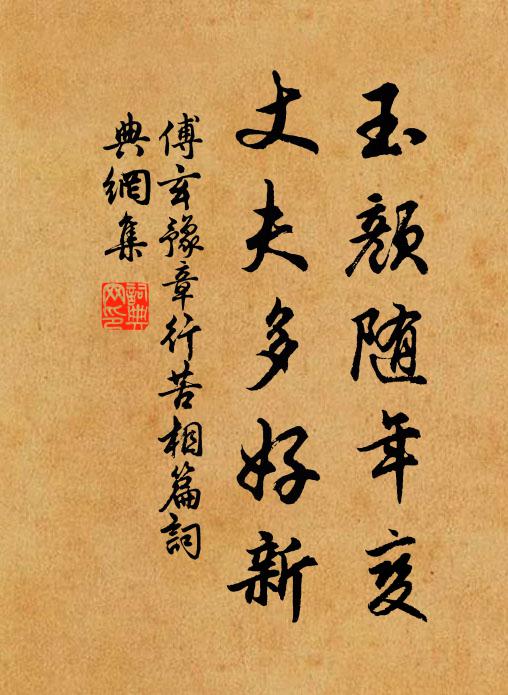 玉颜随年变
丈夫多好新
傅玄豫章行苦相篇詞
典網集
詞典网印